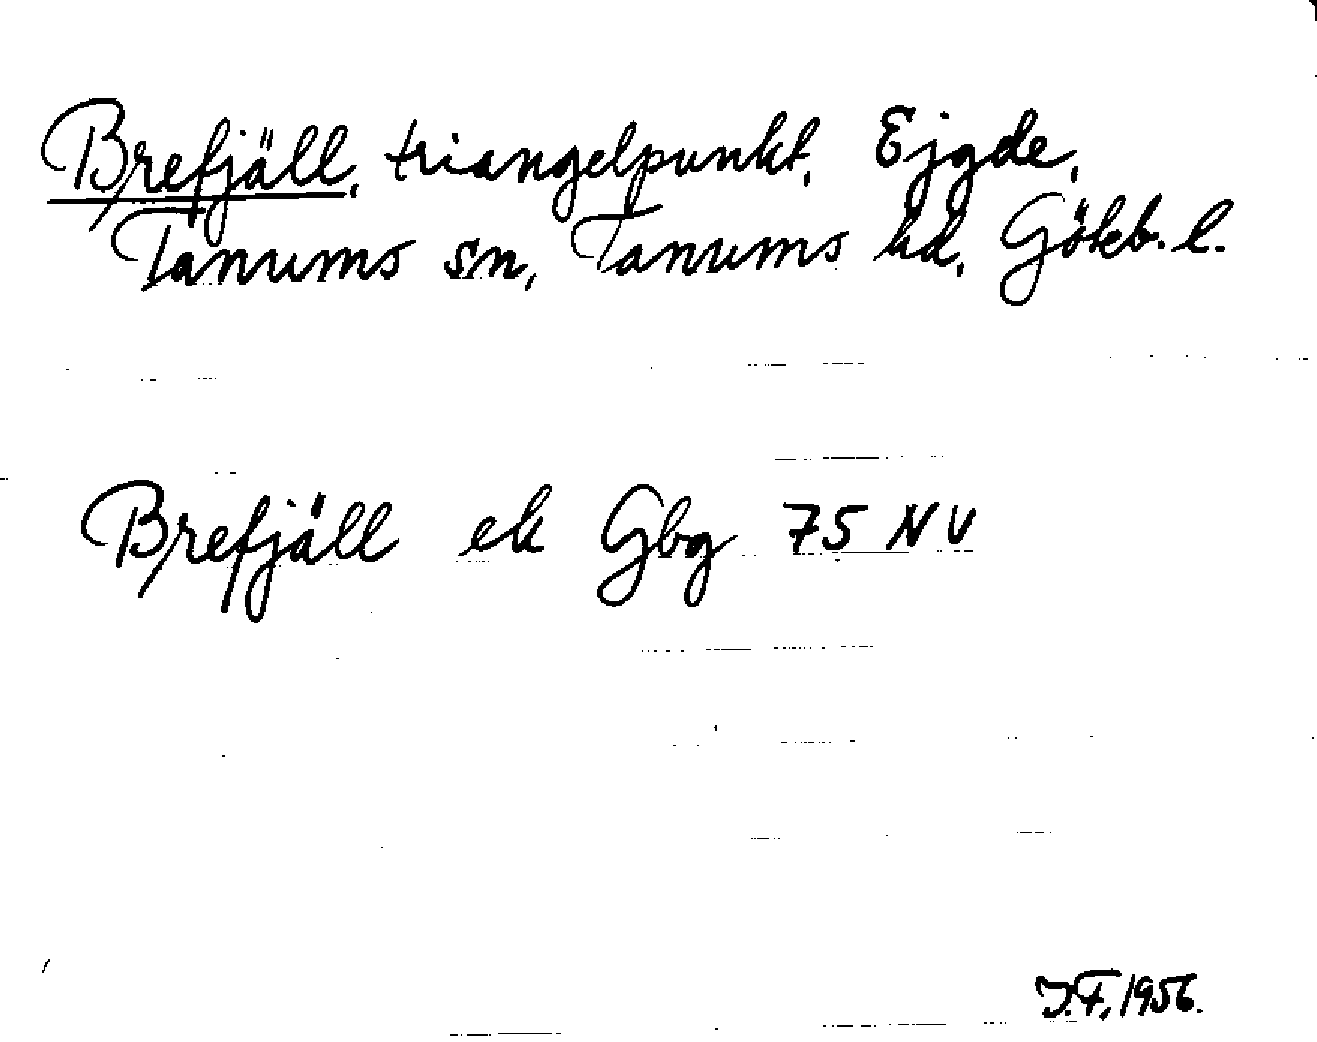 Brefjäll, triangelpunkt, Ejgde,
Tanums sn, Tanums hd, Gökb. l.
Brefjäll ek Gbg 75 NV
J.F, 1956.